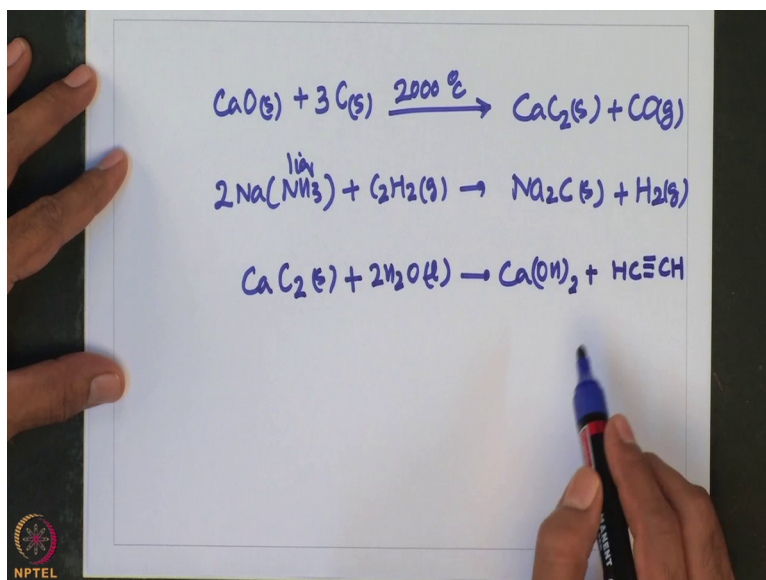 CaO(s) + 3 C(s) 2000 °C → CaC₂(s) + CO(g)
liq
2Na(NH3) + C2H2(g) → Na2C(s) + H2(g)
CaC₂(s) + 2H₂O(l) → Ca(OH)₂ + HC≡CH
MANENT
NPTEL